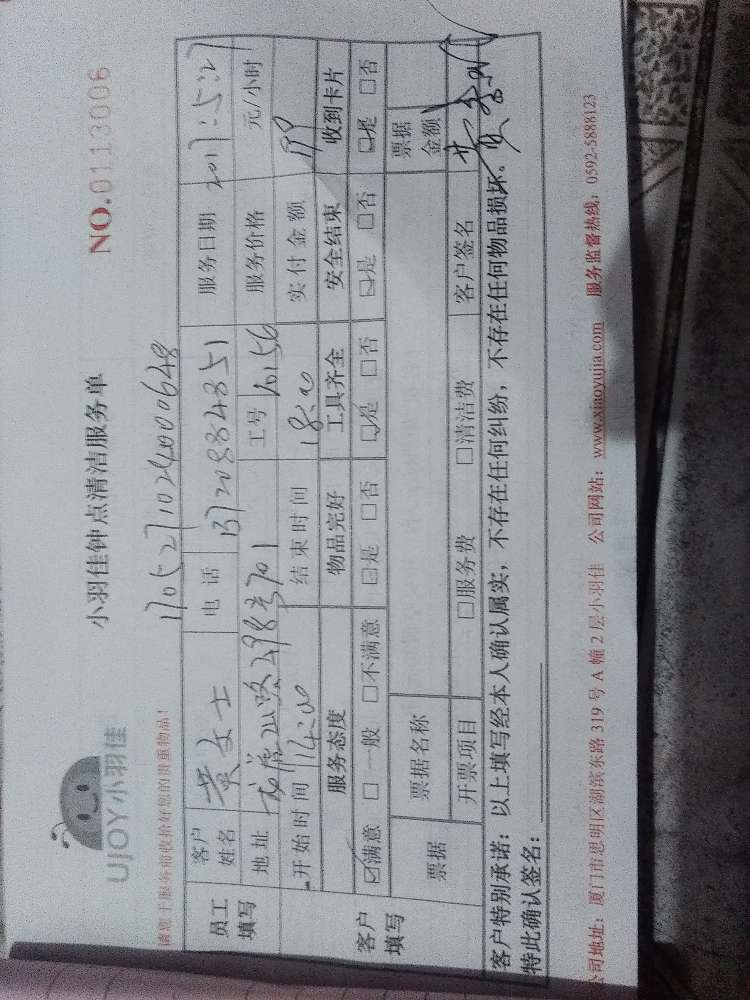 UJOY小羽佳
小羽佳钟点清洁服务单
NO.0113006
请您于服务前收拾好您的贵重物品!
170527102400648
员工填写 客户姓名 黄女士 电话 13720884851 服务日期 2017:5:27
地址 298号701 工号 服务价格 元/小时
开始时间 14:00 结束时间 18:00 实付金额
客户填写 服务态度 物品完好 工具齐全 安全结束 收到卡片
☑满意 □一般 □不满意 □是 □否 ☑是 □否 ☑是 □否 ☑是 □否
票据 票据名称 票据金额
开票项目 □服务费 □清洁费 客户签名
客户特别承诺：以上填写经本人确认属实，不存在任何纠纷，不存在任何物品损坏。
特此确认签名：
公司地址：厦门市思明区湖滨东路 319 号 A 幢 2 层小羽佳 公司网站：www.xiaoyujia.com 服务监督热线：0592-5888123